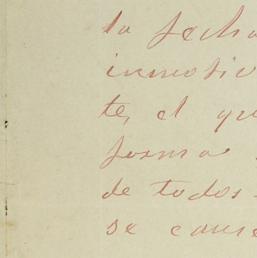 la fecha
inmotiv
te, el qu
forma
de todos
se cause